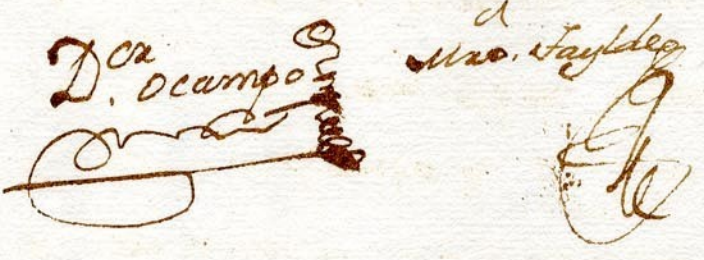 Dor. Ocampo
Mro. Fayldeo